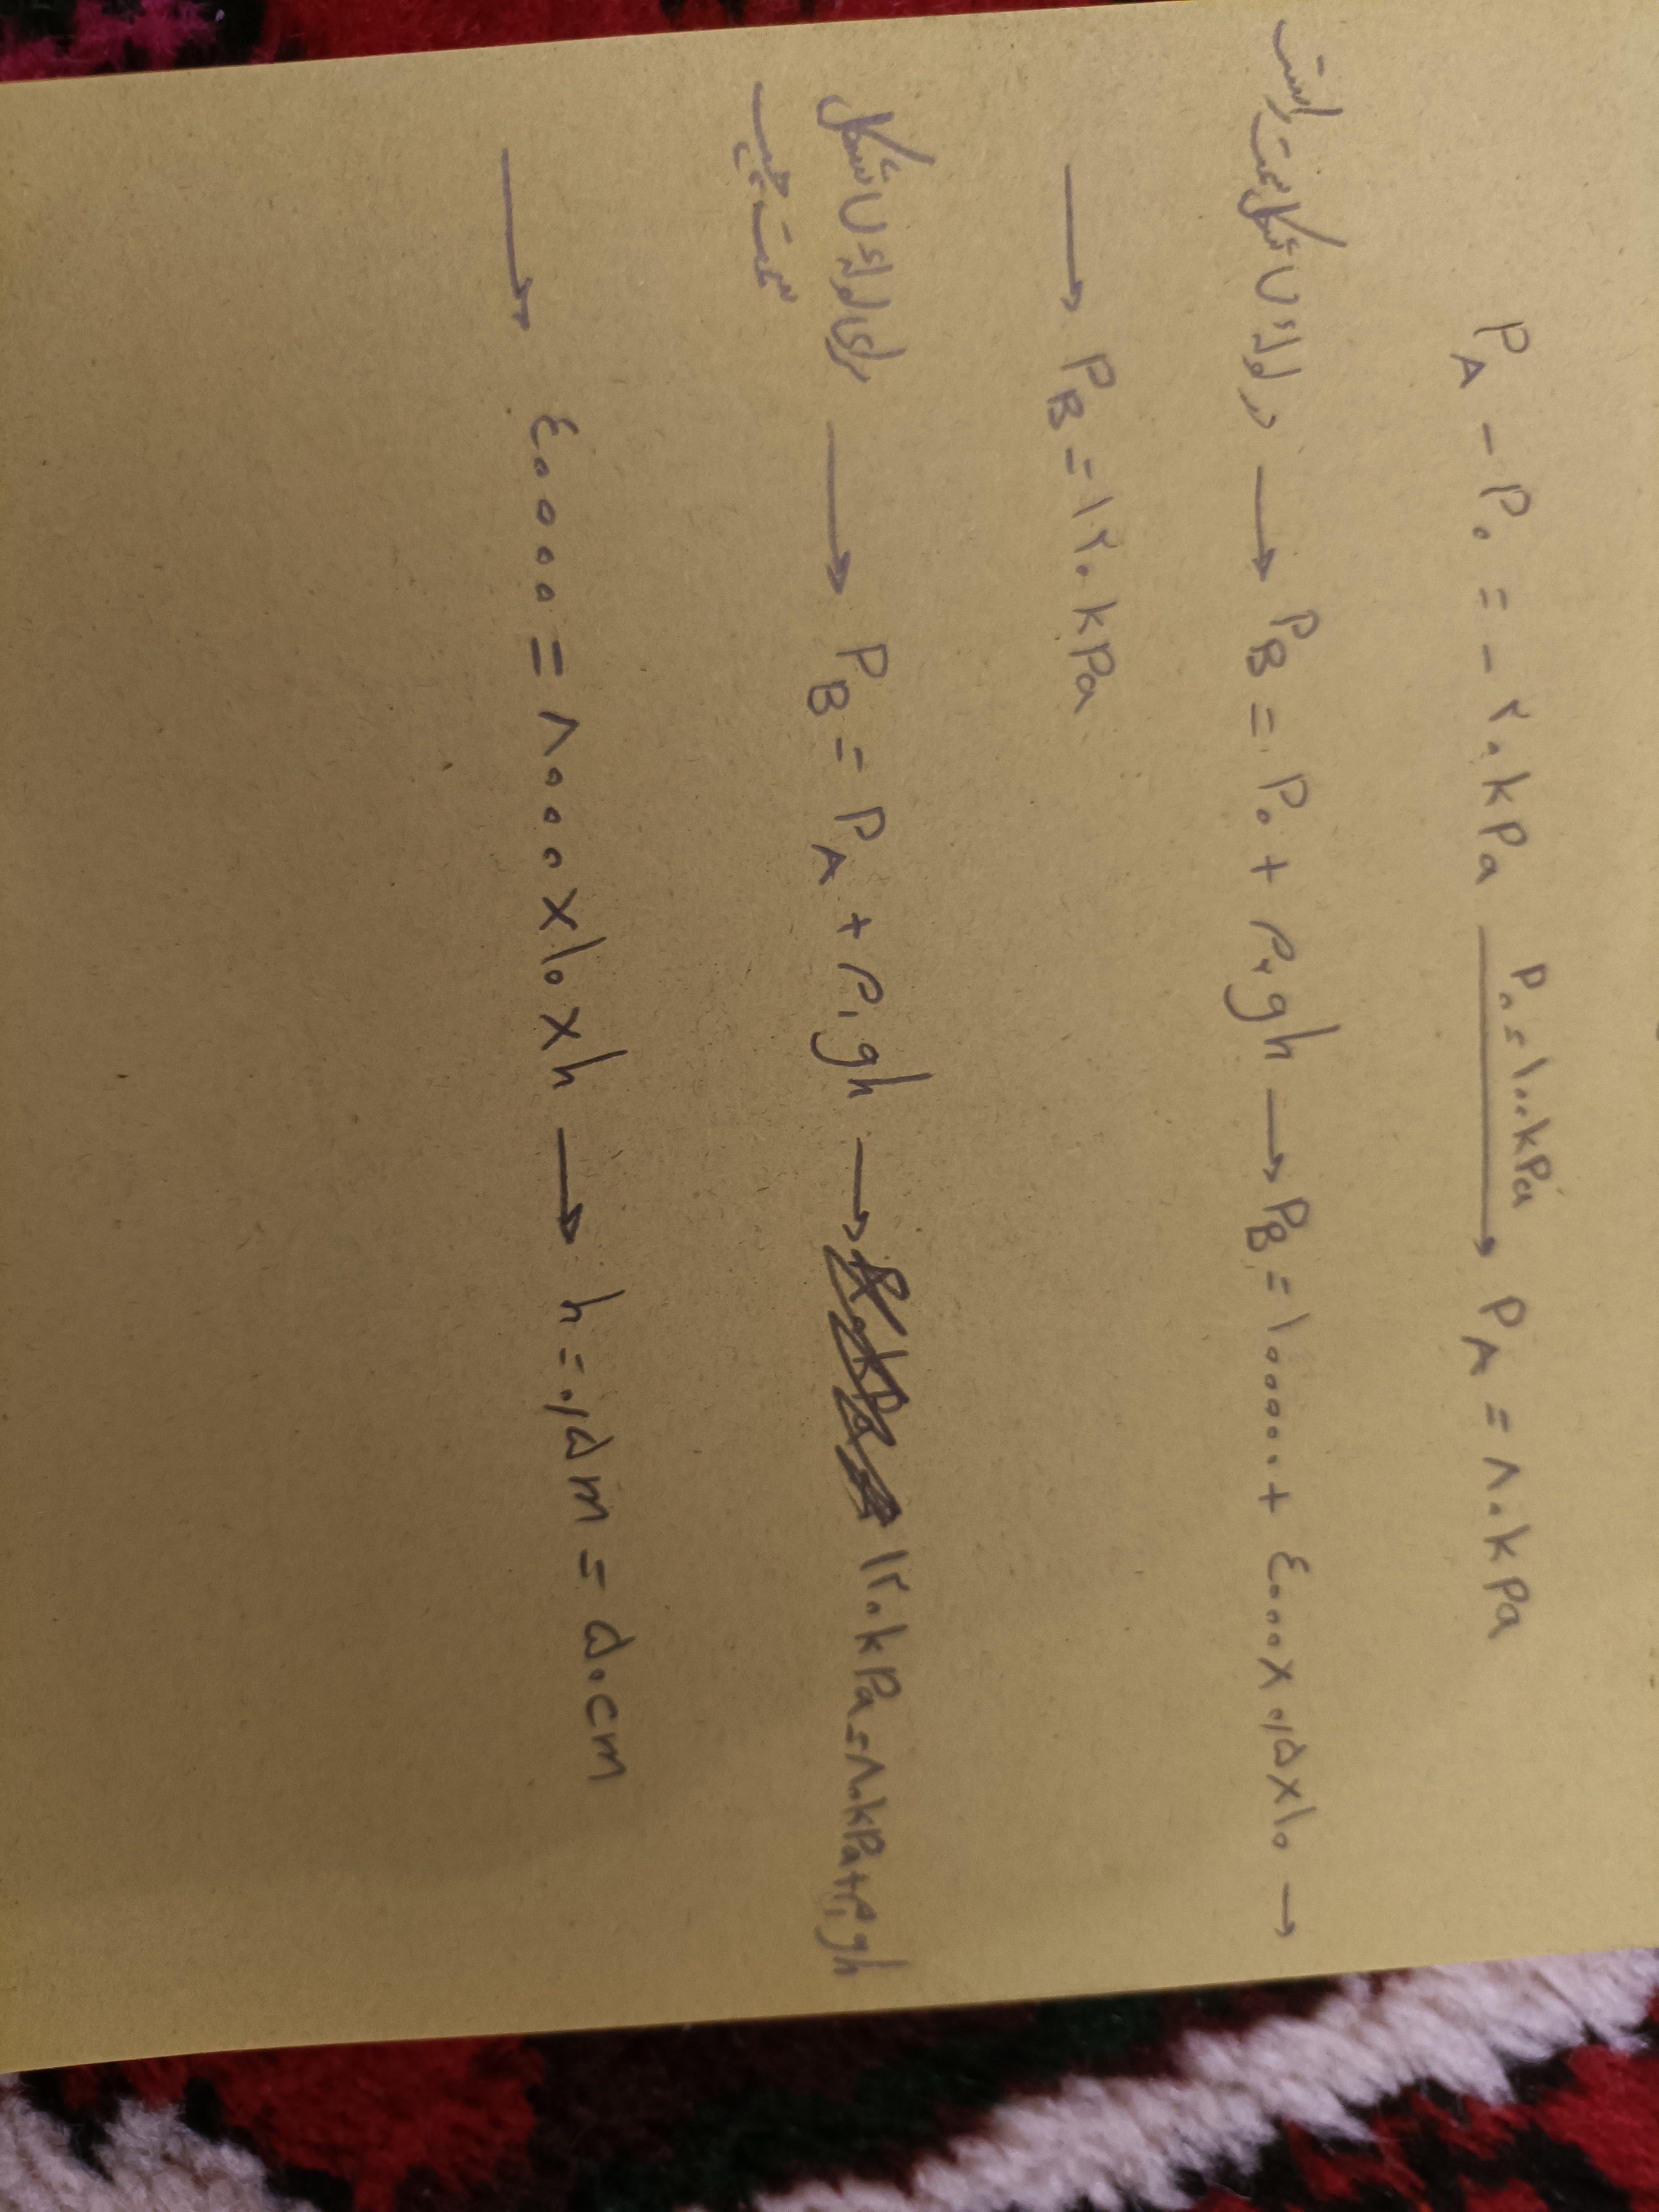 P_A - P_۰ = -۲۰kPa P_۰=۱۰۰kPa → P_A = ۸۰kPa
در لولهٔ U شکل سمت راست → P_B = P_۰ + ρ_۲gh → P_B = ۱۰۰۰۰۰ + ۴۰۰۰×۰٫۵×۱۰ →
→ P_B = ۱۲۰kPa
برای لولهٔ U شکل سمت چپ → P_B = P_A + ρ_۱gh → ۱۲۰kPa = ۸۰kPa+ρ_۱gh
→ ۴۰۰۰۰ = ۸۰۰۰×۱۰×h → h = ۰٫۵m = ۵۰cm